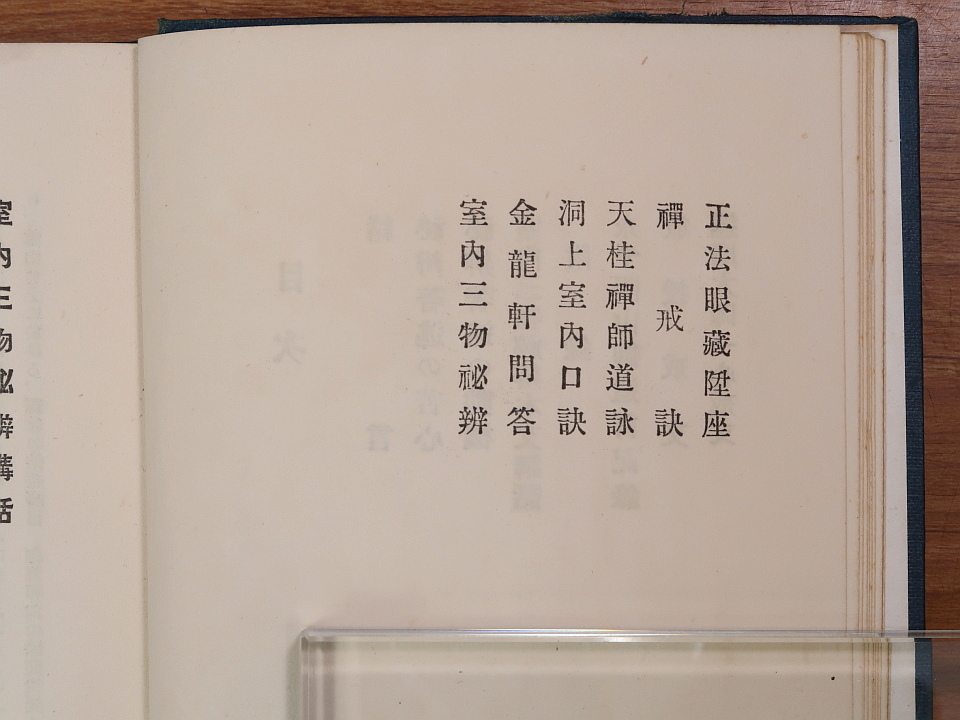 正法眼藏陞座
禪戒訣
天桂禪師道詠
洞上室內口訣
金龍軒問答
室內三物祕辨
室內三物祕辨講話